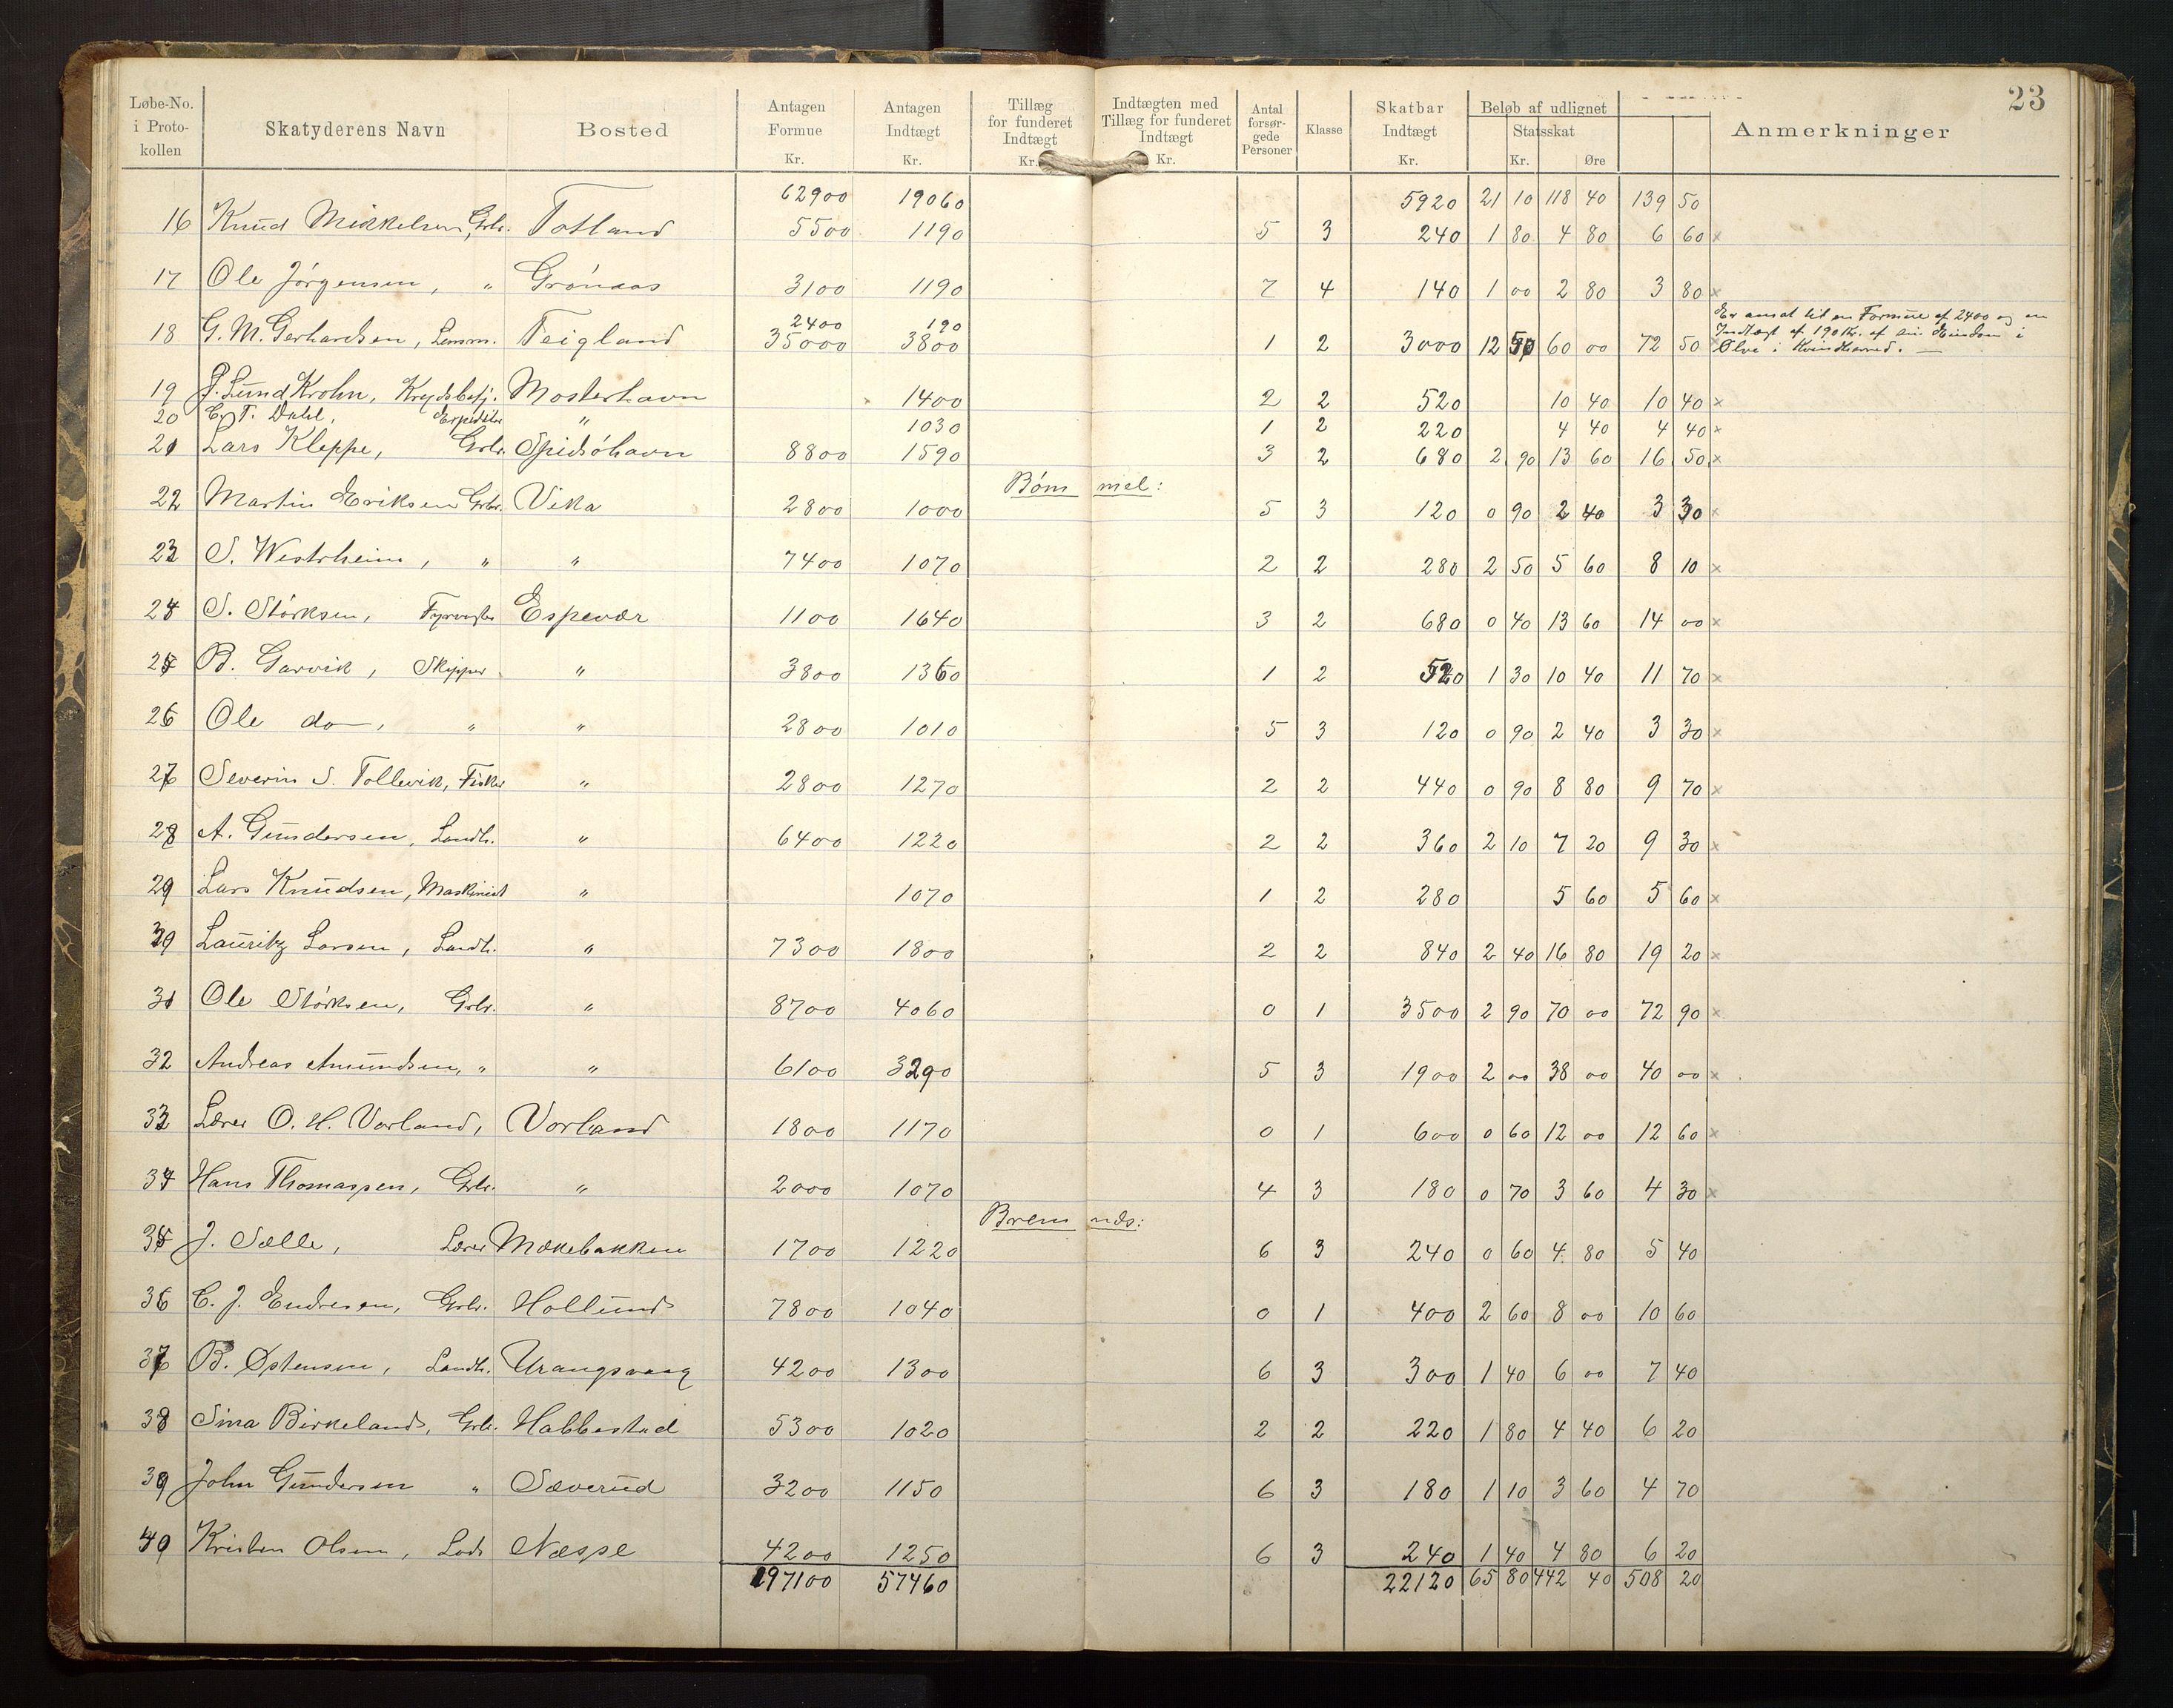 23
Løbe-No. i Proto-kollen | Skatyderens Navn | Bosted | Antagen Formue Kr. | Antagen Indtægt Kr. | Tillæg for funderet Indtægt Kr. | Indtægten med Tillæg for funderet Indtægt Kr. | Antal forsør-gede Personer | Klasse | Skatbar Indtægt Kr. | Beløb af udlignet Statsskat Kr. Øre | Anmerkninger
62900 19060 5920 21 10 118 40 139 50
16 Knud Mikkelsen, Grbr. Totland 5500 1190 5 3 240 1 80 4 80 6 60 x
17 Ole Jørgensen, " Grönaas 3100 1190 7 4 140 1 00 2 80 3 80 x
2400 190 Er ansat til en Formue af 2400 og en
18 G. M. Gerhardsen, Lensm. Teigland 35000 3800 1 2 3000 12 50 60 00 72 50 Indtægt af 190 Kr. af sin Eiendom i
Ølve i Kvindherred. —
19 J. Lund Krohn, Krydsbetj. Mosterhavn 1400 2 2 520 10 40 10 40 x
20 T. Dahl, Expeditør " 1030 1 2 220 4 40 4 40 x
21 Lars Kleppe, Grbr. Spidsöhavn 8800 1590 3 2 680 2 90 13 60 16 50 x
Bömmel:
22 Martin Eriksen Grbr. Vika 2800 1000 5 3 120 0 90 2 40 3 30 x
23 S. Westrheim, " " 7400 1070 2 2 280 2 50 5 60 8 10 x
24 S. Störksen, Fyrvogter Espevær 1100 1640 3 2 680 0 40 13 60 14 00 x
25 B. Garvik, Skipper " 3800 1360 1 2 520 1 30 10 40 11 70 x
26 Ole do, " " 2800 1010 5 3 120 0 90 2 40 3 30 x
27 Severin S. Tollevik, Fisker " 2800 1270 2 2 440 0 90 8 80 9 70 x
28 A. Gundersen, Landh. " 6400 1220 2 2 360 2 10 7 20 9 30 x
29 Lars Knudsen, Maskinist " 1070 1 2 280 5 60 5 60 x
30 Lauritz Larsen, Landh. " 7300 1800 2 2 840 2 40 16 80 19 20 x
31 Ole Störksen, Grbr. " 8700 4060 0 1 3500 2 90 70 00 72 90 x
32 Andreas Amundsen, " " 6100 3290 5 3 1900 2 00 38 00 40 00 x
33 Lærer O. H. Vorland, Vorland 1800 1170 0 1 600 0 60 12 00 12 60 x
34 Hans Thomassen, Grbr. " 2000 1070 4 3 180 0 70 3 60 4 30 x
Bremnds:
35 J. Sælle, Lærer Mækebakken 1700 1220 6 3 240 0 60 4 80 5 40
36 C. J. Endresen, Grbr. Hollund 7800 1040 0 1 400 2 60 8 00 10 60
37 B. Østensen, Landh. Urangsvaag 4200 1300 6 3 300 1 40 6 00 7 40
38 Sina Birkeland, Grbr. Habbestad 5300 1020 2 2 220 1 80 4 40 6 20
39 John Gundersen " Sæverud 3200 1150 6 3 180 1 10 3 60 4 70
40 Kristen Olsen, Lods Næsse 4200 1250 6 3 240 1 40 4 80 6 20
197100 57460 22120 65 80 442 40 508 20